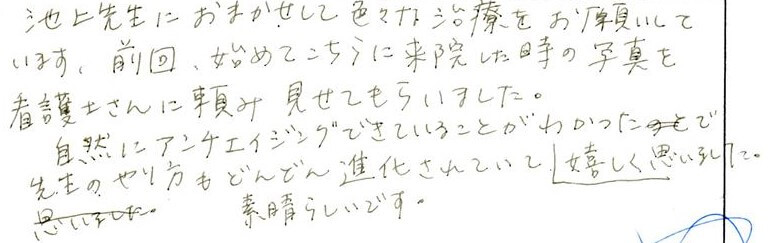 池上先生におまかせして色々な治療をお願いして
います。前回、始めてこちらに来院した時の写真を
看護士さんに頼み見せてもらいました。
自然にアンチエイジングできていることがわかったので
先生のやり方もどんどん進化されていて嬉しく思いました。
思いました。 素晴らしいです。